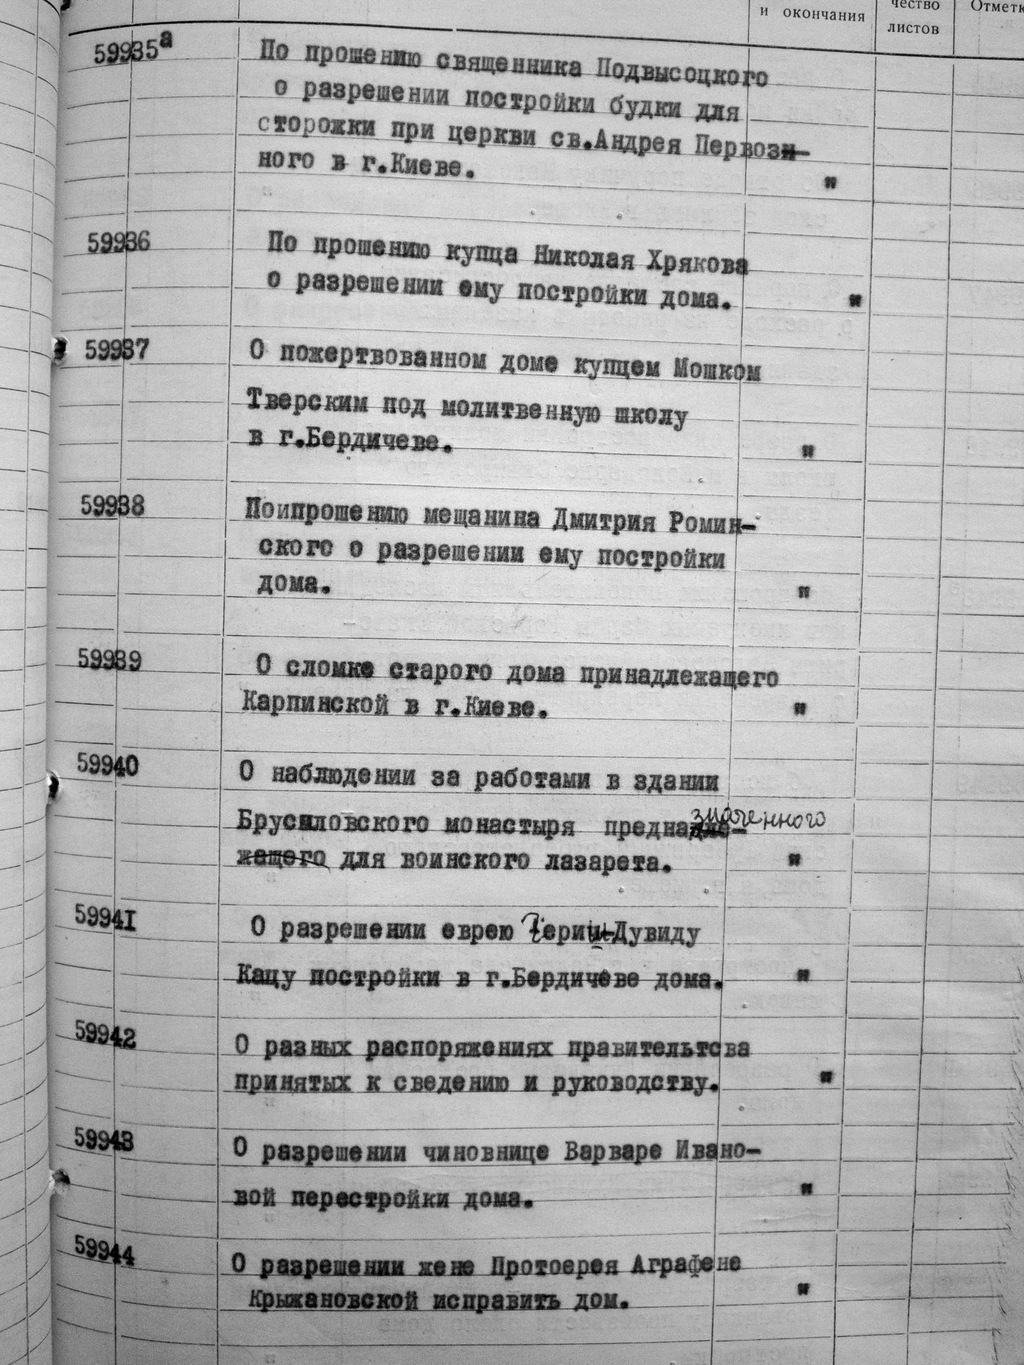 и окончания
чество
листов
59935а
По прошению священника Подвысоцкого
о разрешении постройки будки для
сторожки при церкви св.Андрея Первозн-
ного в г.Киеве. "
59936
По прошению купца Николая Хрякова
о разрешении ему постройки дома. "
59937
О пожертвованном доме купцем Мошком
Тверским под молитвенную школу
в г.Бердичеве. "
59938
Поипрошению мещанина Дмитрия Ромин-
ского о разрешении ему постройки
дома. "
59939
О сломке старого дома принадлежащего
Карпинской в г.Киеве. "
59940
О наблюдении за работами в здании
значенного
Брусиловского монастыря преднадле-
жащего для воинского лазарета. "
59941
О разрешении еврею Дувиду
Кацу постройки в г.Бердичеве дома. "
59942
О разных распоряжениях правительтсва
принятых к сведению и руководству. "
59943
О разрешении чиновнице Варваре Ивано-
вой перестройки дома. "
59944
О разрешении жене Протоерея Аграфене
Крыжановской исправить дом. "